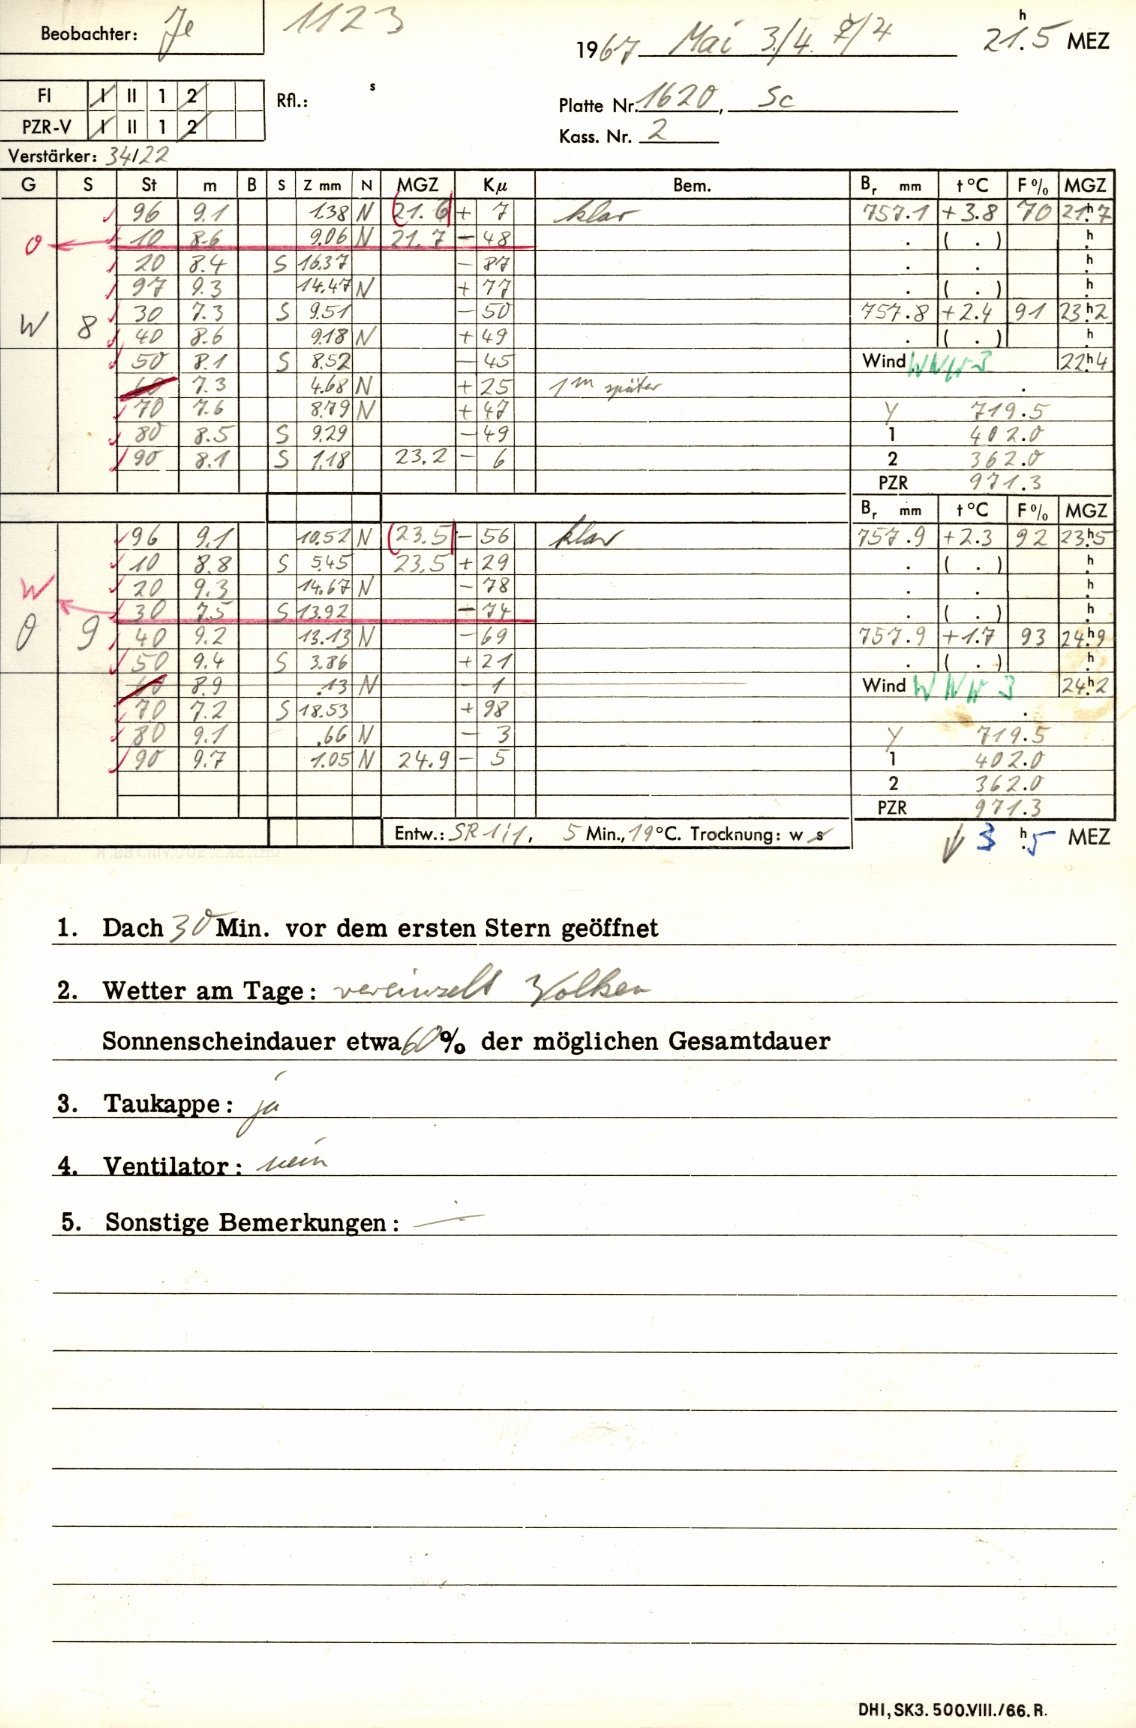 Beobachter: Je 1123
1967 Mai 3./4. 21h.5 MEZ
FI I II 1 2 Rfl.: s
Platte Nr. 1620, Sc
PZR-V I II 1 2
Kass. Nr. 2
Verstärker: 34/22
G S St m B S Z mm N MGZ Kμ Bem. Br mm t°C F% MGZ
96 9.1 1.38 N (21.6) + 7 klar 757.1 +3.8 70 21h.7
O 10 8.6 9.06 N 21.7 – 48 . ( . ) h.
20 8.4 S 16.37 – 87 . . h.
97 9.3 14.47 N + 77 . ( . ) h.
W 8 30 7.3 S 9.51 – 50 757.8 +2.4 91 23h.2
40 8.6 9.18 N + 49 . ( . ) h
50 8.1 S 8.52 – 45 Wind WNW 3 22h.4
60 7.3 4.68 N + 25 1m später .
70 7.6 8.79 N + 47 Y 719.5
80 8.5 S 9.29 – 49 1 402.0
90 8.1 S 1.18 23.2 – 6 2 362.0
PZR 971.3
Br mm t°C F% MGZ
96 9.1 10.52 N (23.5) – 56 klar 757.9 +2.3 92 23h.5
10 8.8 S 5.45 23.5 + 29 . ( . ) h.
W 20 9.3 14.67 N – 78 . . h.
30 7.5 S 13.92 – 74 . ( . ) h.
O 9 40 9.2 13.13 N – 69 757.9 +1.7 93 24h.9
50 9.4 S 3.86 + 21 . ( . ) h.
60 8.9 .13 N – 1 Wind WNW 3 24h.2
70 7.2 S 18.53 + 98 .
80 9.1 .66 N – 3 Y 719.5
90 9.7 1.05 N 24.9 – 5 1 402.0
2 362.0
PZR 971.3
Entw.: SR 1:1, 5 Min., 19°C. Trocknung: w s 3 h.5 MEZ
1. Dach 30 Min. vor dem ersten Stern geöffnet
2. Wetter am Tage: vereinzelt Wolken
Sonnenscheindauer etwa 60% der möglichen Gesamtdauer
3. Taukappe: ja
4. Ventilator: nein
5. Sonstige Bemerkungen: —
DHI, SK3. 500.VIII./66. R.